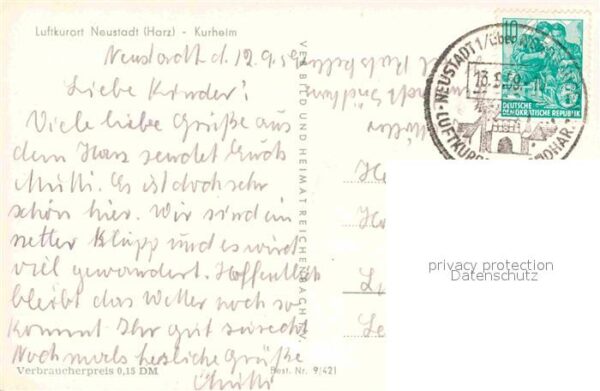 Luftkurort Neustadt (Harz) - Kurheim
Neustadt d. 12.9.59
Liebe Kinder!
Viele liebe Grüße aus
dem Harz sendet Euch
Mutti. Es ist doch sehr
schön hier. Wir sind ein
netter Klupp und es wird
viel gewandert. Hoffentlich
bleibt das Wetter noch so
kommt Ihr gut zurecht
Nochmals herzliche Grüße
Mutti
Verbraucherpreis 0,15 DM
Best. Nr. 9/421
VEB BILD UND HEIMAT REICHENBACH I. V.
NEUSTADT 1/über
13.9.59
LUFTKURORT
10
DEUTSCHE
DEMOKRATISCHE REPUBLIK
privacy protection
Datenschutz